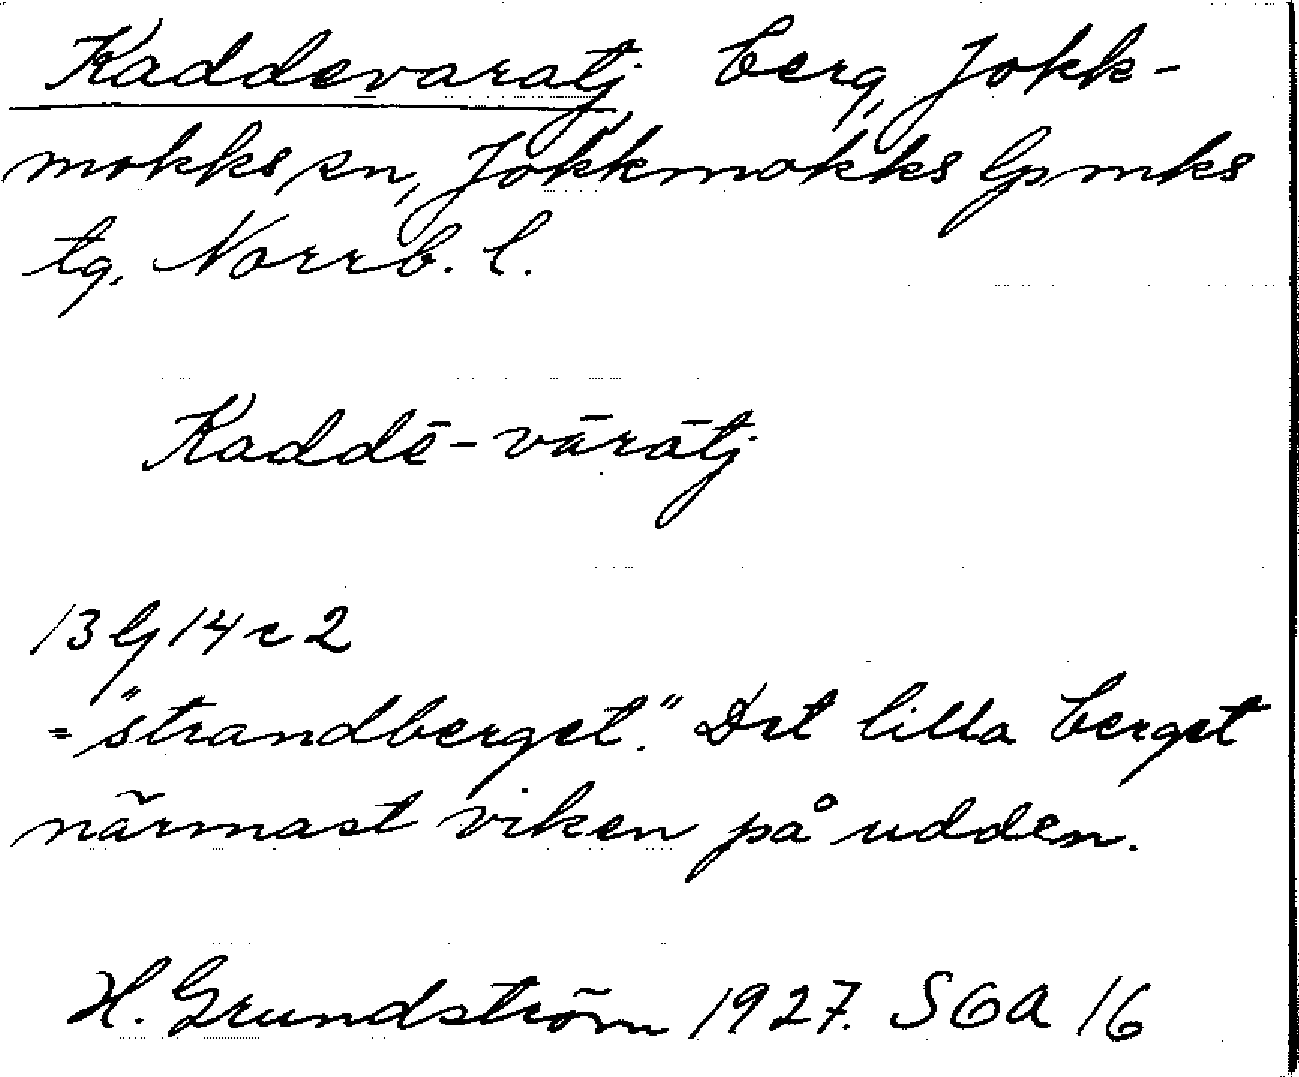 Kaddevaratj berg, Jokk-
mokks sn, Jokkmokks lpmks
tg, Norrb. l.
Kaddē-vārātj
13 G 14 c 2
="strandberget." Det lilla berget
närmast viken på udden.
H. Grundström 1927. SOA 16